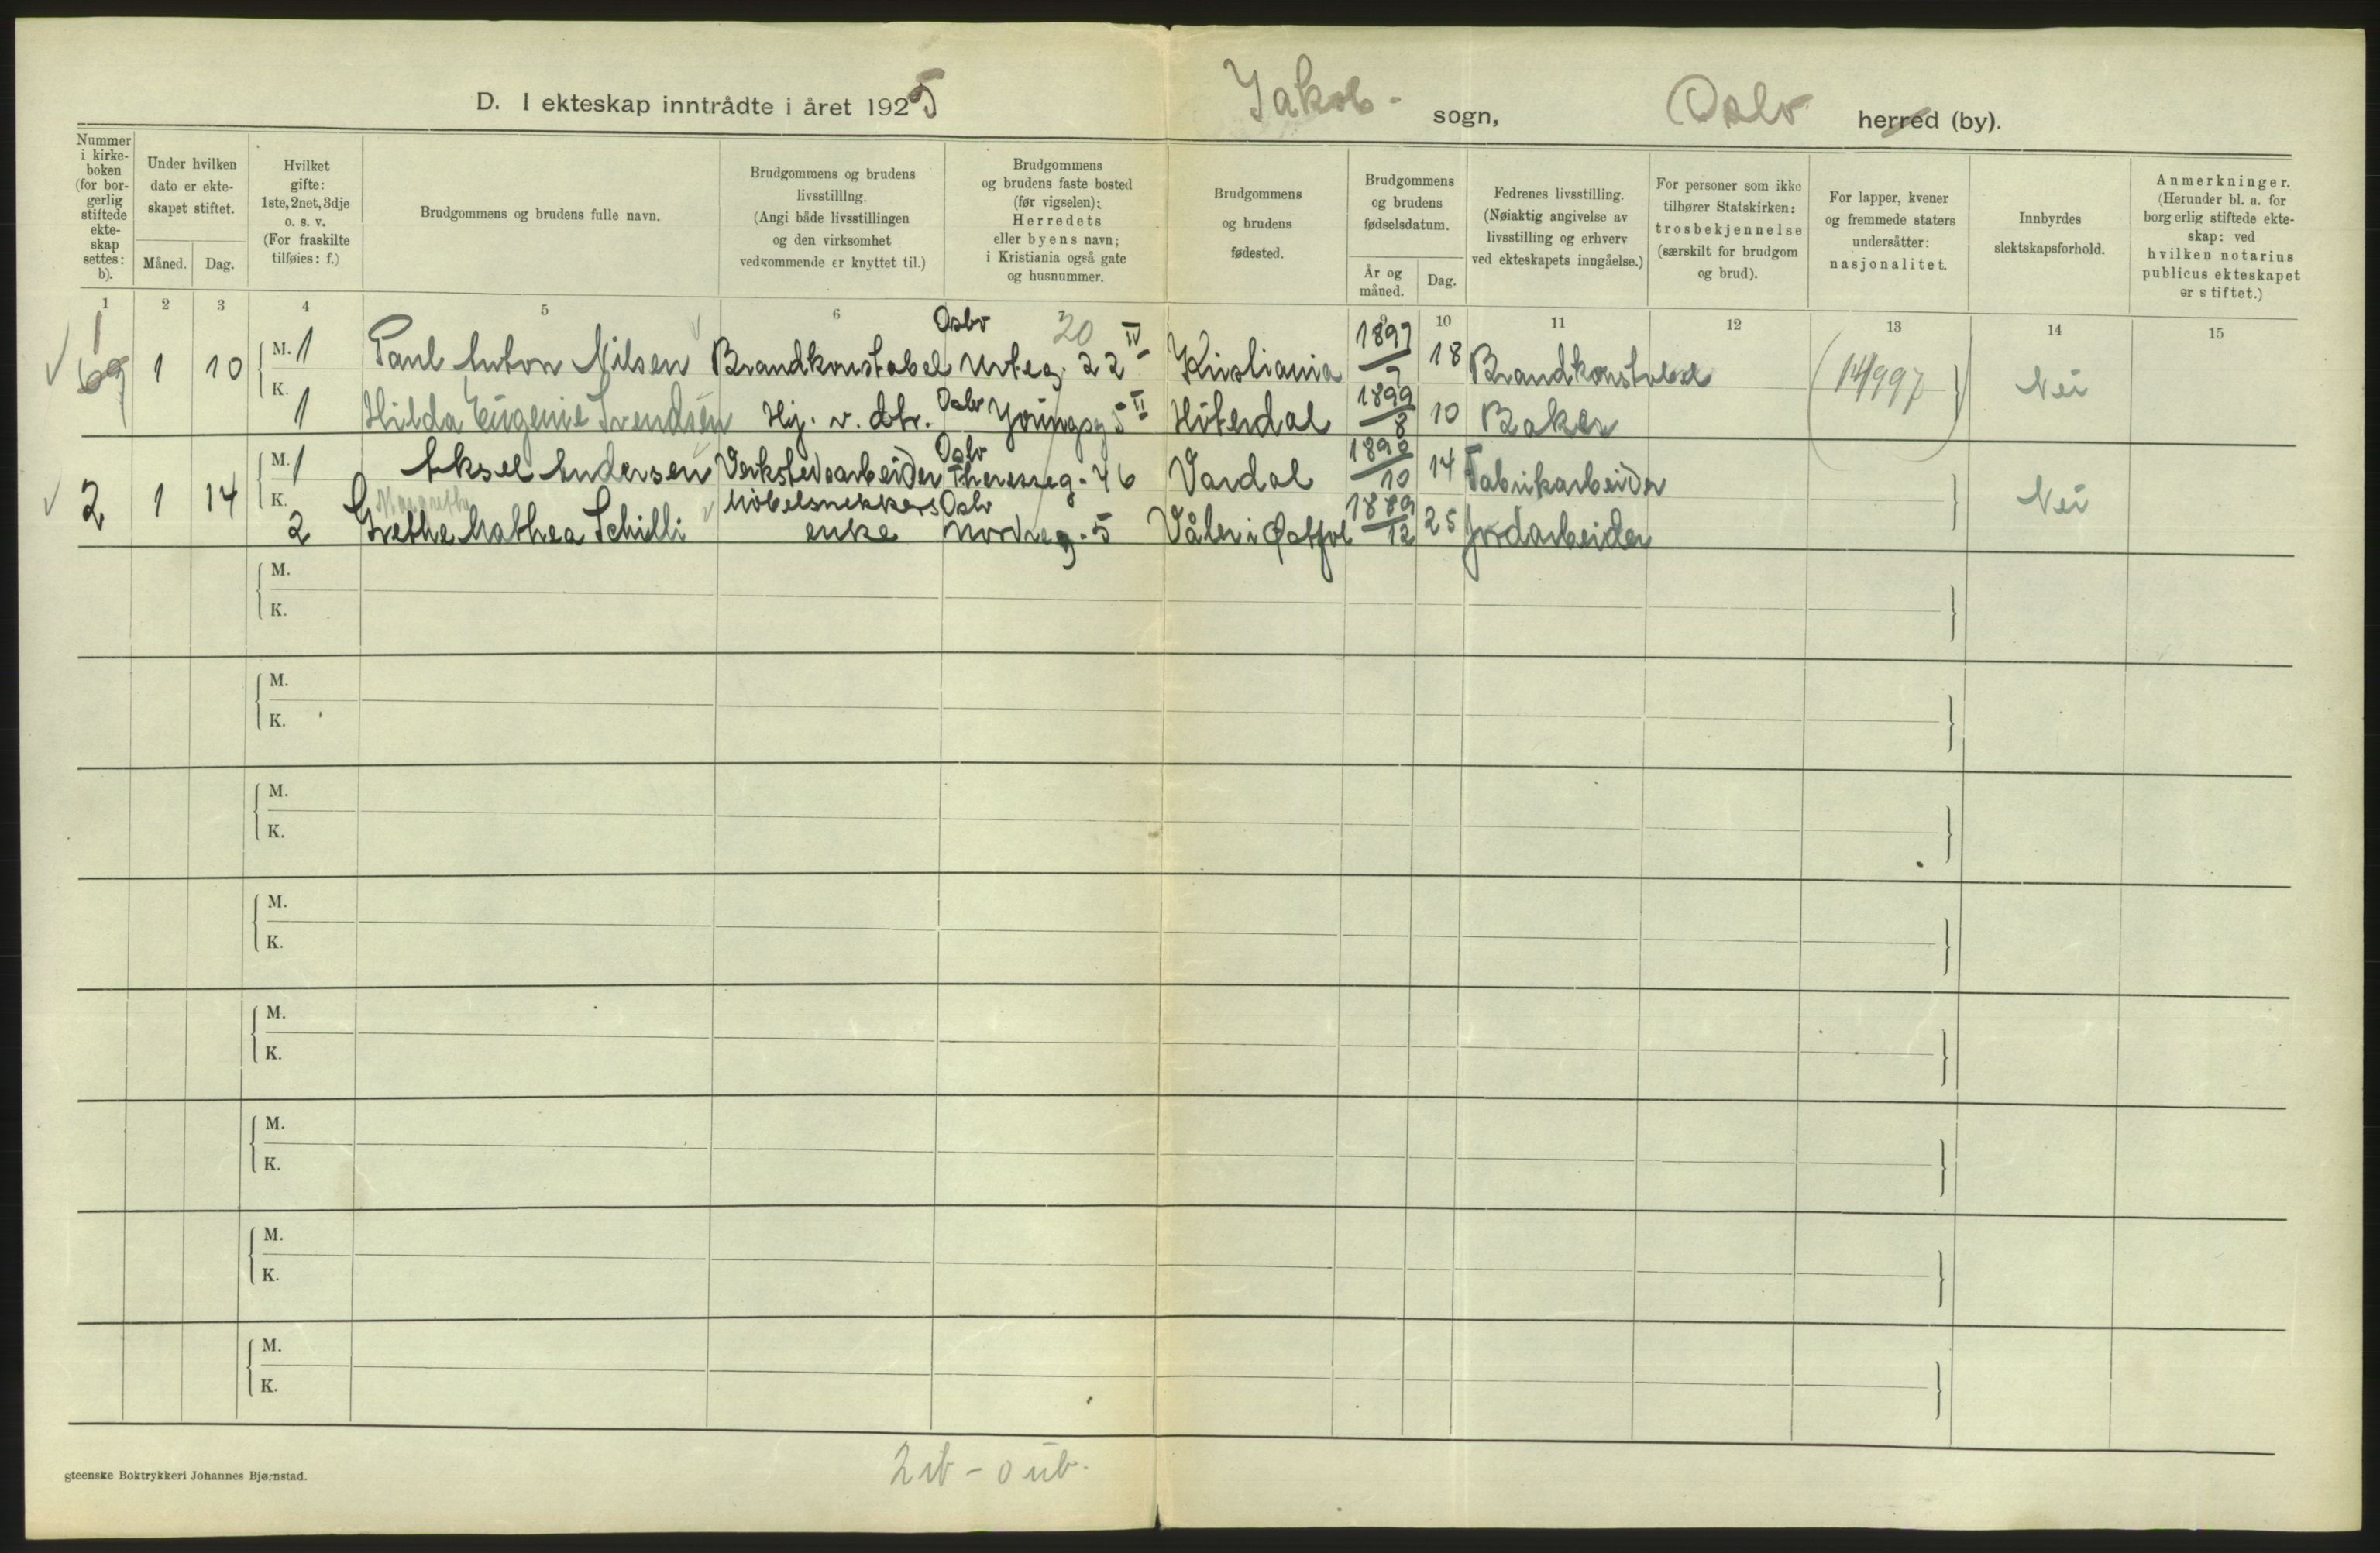 D. I ekteskap inntrådte i året 1925 Jakob- sogn, Oslo herred (by).
Nummer i kirkeboken (for borgerlig stiftede ekteskap settes: b).
Under hvilken dato er ekteskapet stiftet.
Måned. Dag.
Hvilket gifte: 1ste, 2net, 3dje o. s. v. (For fraskilte tilføies: f.)
Brudgommens og brudens fulle navn.
Brudgommens og brudens livsstilllng. (Angi både livsstillingen og den virksomhet vedkommende er knyttet til.)
Brudgommens og brudens faste bosted (før vigselen); Herredets eller byens navn; i Kristiania også gate og husnummer.
Brudgommens og brudens fødested.
Brudgommens og brudens fødselsdatum.
År og måned. Dag.
Fedrenes livsstilling. (Nøiaktig angivelse av livsstilling og erhverv ved ekteskapets inngåelse.)
For personer som ikke tilhører Statskirken: trosbekjennelse (særskilt for brudgom og brud).
For lapper, kvener og fremmede staters undersåtter: nasjonalitet.
Innbyrdes slektskapsforhold.
Anmerkninger. (Herunder bl. a. for borgerlig stiftede ekteskap: ved hvilken notarius publicus ekteskapet er stiftet.)
1 2 3 4 5 6 9 10 11 12 13 14 15
1 69 1 10 M. 1 Paul Anton Nilsen Brandkonstabel Oslo Urteg. 22 IV 20 Kristiania 1897 7 18 Brandkonstabel (14997) Nei
K. 1 Hilda Eugenie Svendsen Hj. v. dtr. Oslo Youngsg 5 II Hiterdal 1899 8 10 Baker
2 1 14 M. 1 Aksel Andersen Verkstedsarbeider Oslo Theresesg. 46 Vardal 1890 10 14 Fabrikarbeider Nei
K. 2 Margrethe Grethe Mathea Schilli Møbelsnekkers enke Oslo Nordreg. 5 Våler i Østfol 1889 12 25 Jordarbeider
M.
K.
M.
K.
M.
K.
M.
K.
M.
K.
M.
K.
M.
K.
M.
K.
2 ib - 0 ub.
steenske Boktrykkeri Johannes Bjørnstad.